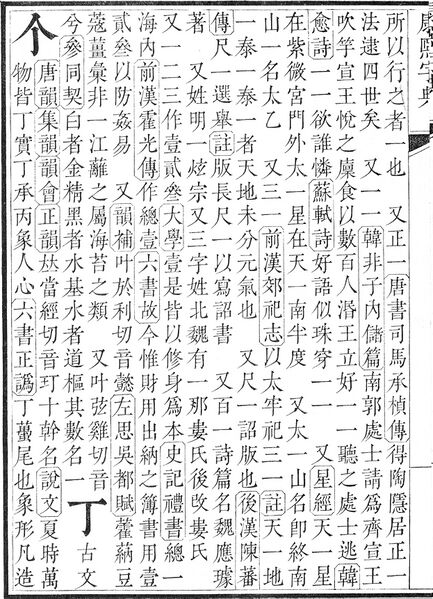 康熙字典
所以行之者一也　又正一唐書司馬承禎傳得陶隱居正一
法逮四世矣　又一一韓非子內儲篇南郭處士請爲齊宣王
吹竽宣王悅之廩食以數百人湣王立好一一聽之處士逃韓
愈詩一一欲誰憐蘇軾詩好語似珠穿一一　又星經天一星
在紫微宮門外太一星在天一南半度　又太一山名卽終南
山一名太乙　又三一前漢郊祀志以太牢祀三一註天一地
一泰一泰一者天地未分元氣也　又尺一詔版也後漢陳蕃
傳尺一選舉註版長尺一以寫詔書　又百一詩篇名魏應璩
著　又姓明一炫宗又三字姓北魏有一那婁氏後改婁氏
又一二三作壹貳叄大學壹是皆以修身爲本史記禮書總一
海內前漢霍光傳作總壹六書故今惟財用出納之簿書用壹
貳叄以防姦易　又韻補叶於利切音懿左思吳都賦藿蒳豆
蔻薑彙非一江蘺之屬海苔之類　又叶弦雞切音
兮參同契白者金精黑者水基水者道樞其數名一
丁　古文
个
唐韻集韻韻會正韻𠀤當經切音玎十幹名說文夏時萬
物皆丁實丁承丙象人心六書正譌丁蠆尾也象形凡造